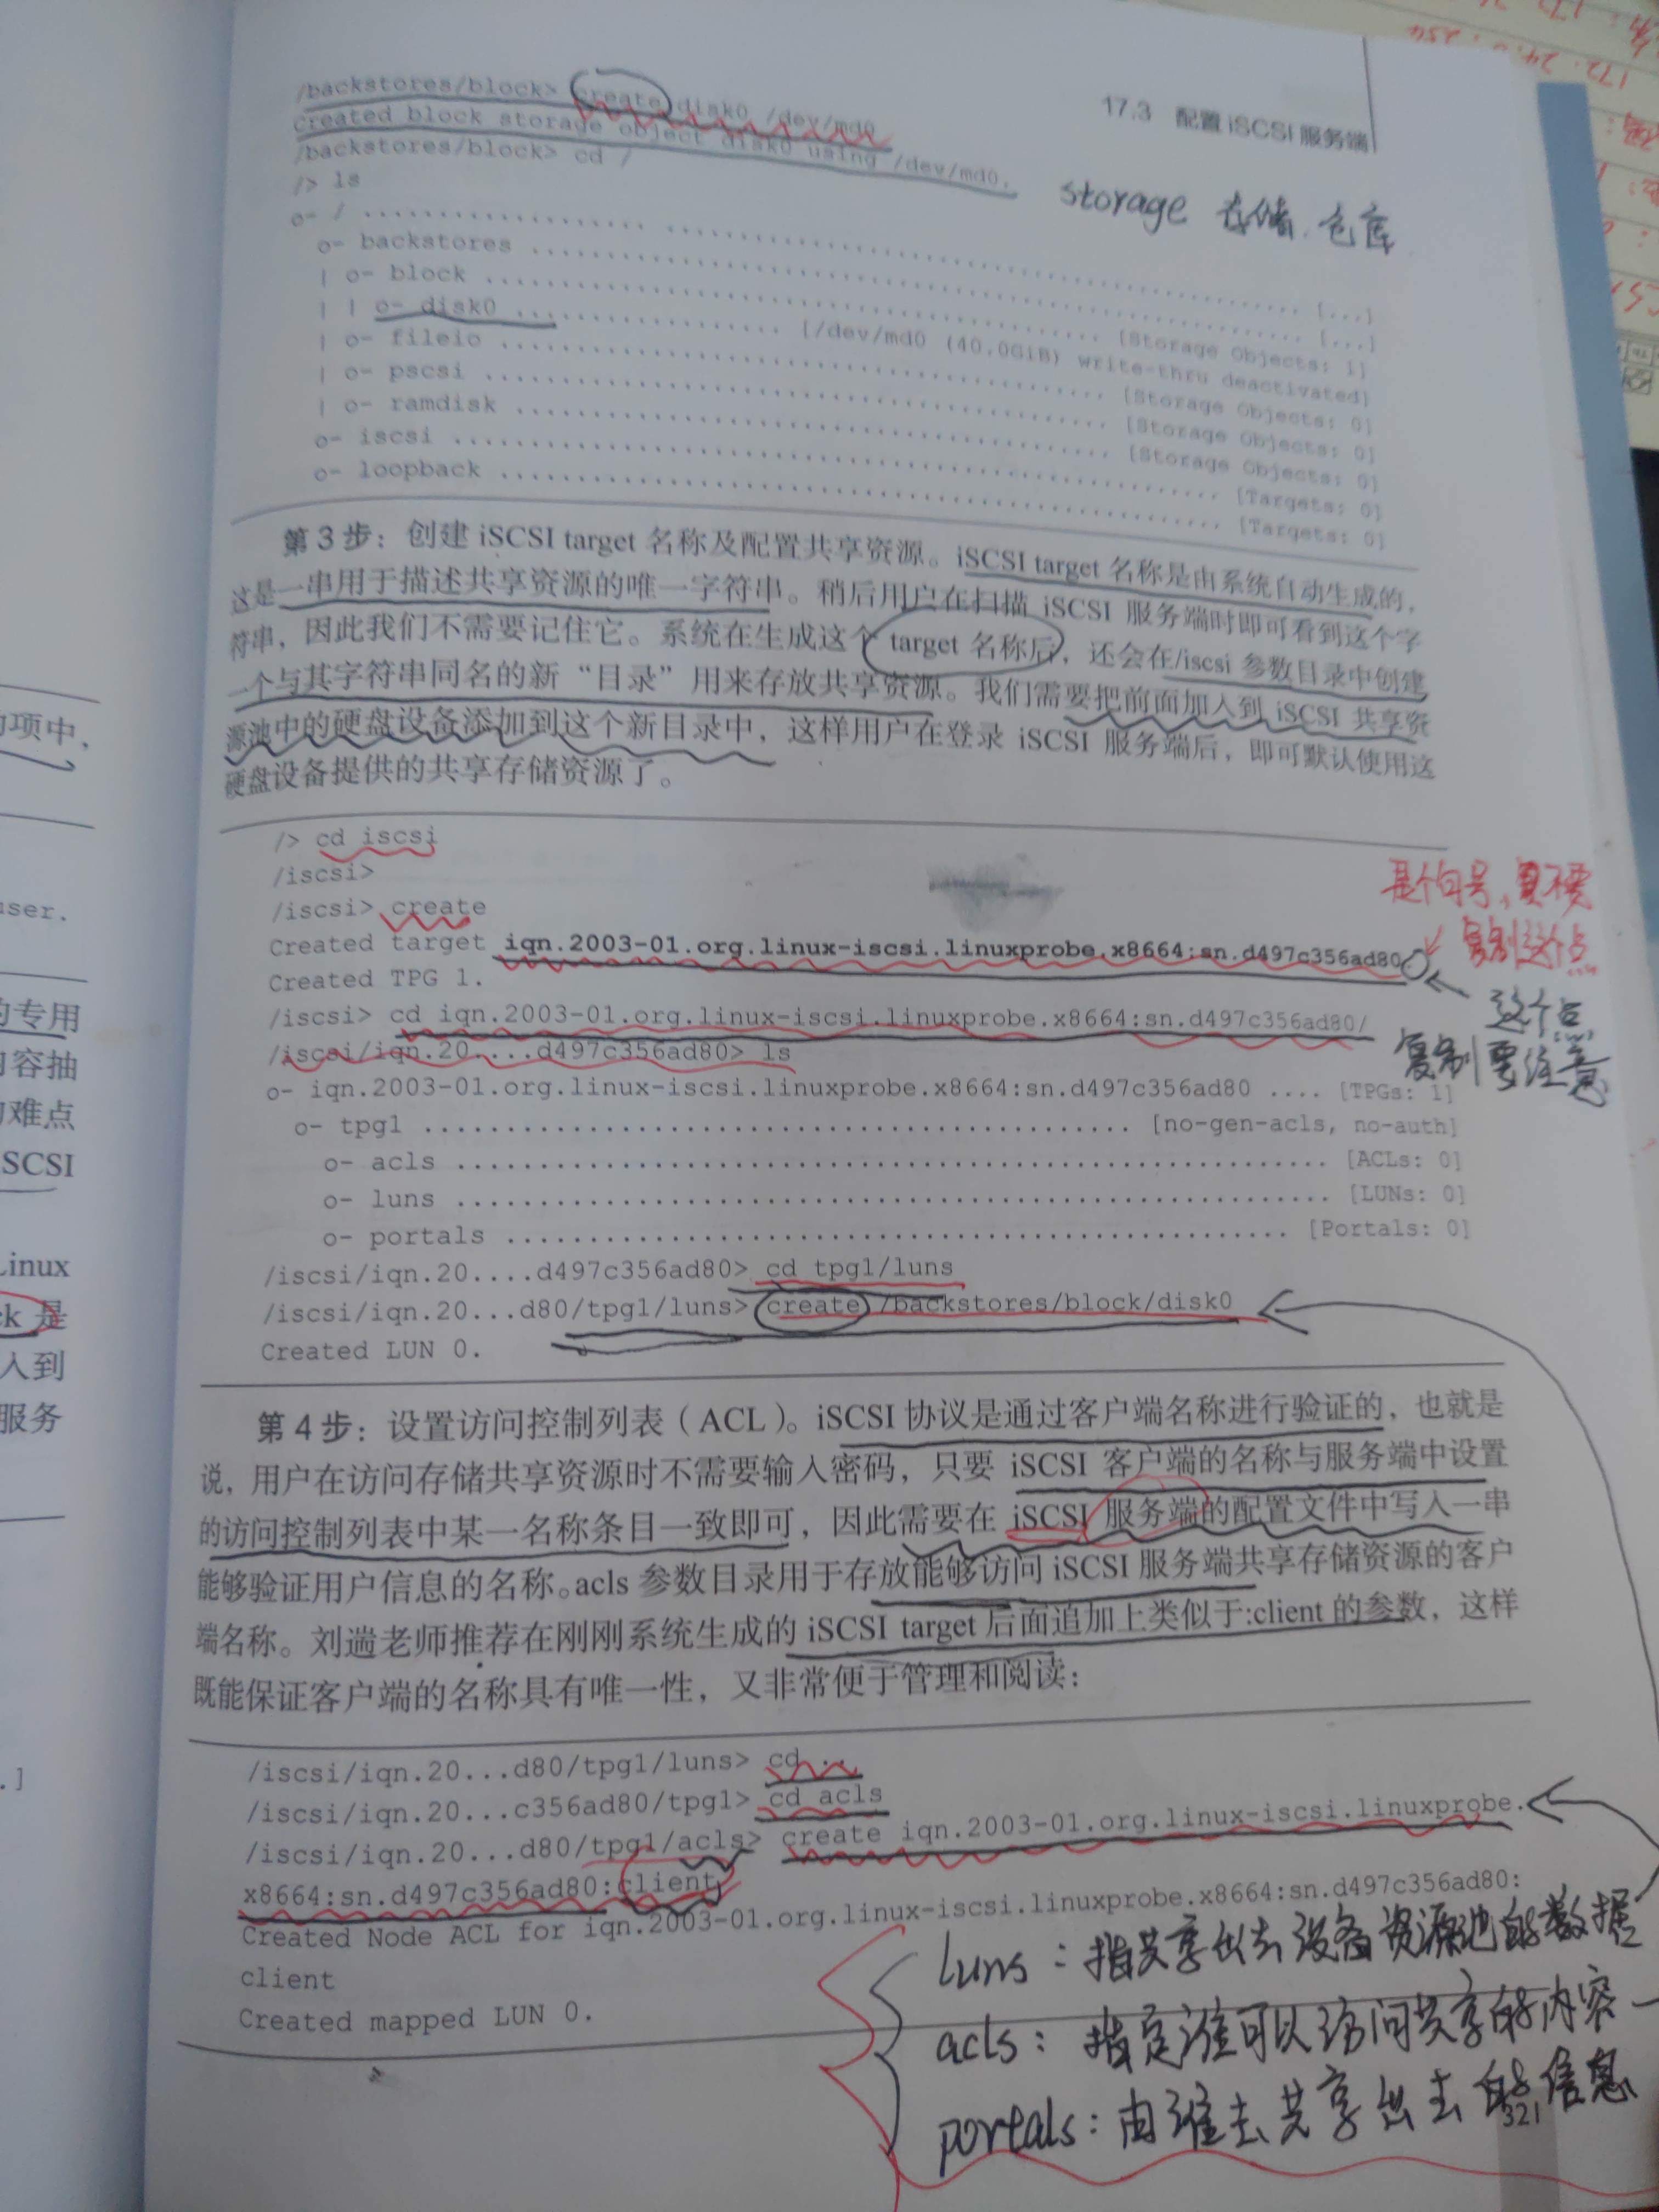 17.3 配置 iSCSI 服务端
/backstores/block> create disk0 /dev/md0
Created block storage object disk0 using /dev/md0.
/backstores/block> cd /
/> ls
storage 存储.仓库
o- / ..................... [...]
o- backstores ..................... [...]
| o- block ..................... [Storage Objects: 1]
| | o- disk0 ..................... [/dev/md0 (40.0GiB) write-thru deactivated]
| o- fileio ..................... [Storage Objects: 0]
| o- pscsi ..................... [Storage Objects: 0]
| o- ramdisk ..................... [Storage Objects: 0]
o- iscsi ..................... [Targets: 0]
o- loopback ..................... [Targets: 0]
第3步：创建 iSCSI target 名称及配置共享资源。iSCSI target 名称是由系统自动生成的，
这是一串用于描述共享资源的唯一字符串。稍后用户在扫描 iSCSI 服务端时即可看到这个字
符串，因此我们不需要记住它。系统在生成这个 target 名称后，还会在/iscsi 参数目录中创建
一个与其字符串同名的新“目录”用来存放共享资源。我们需要把前面加入到 iSCSI 共享资
源池中的硬盘设备添加到这个新目录中，这样用户在登录 iSCSI 服务端后，即可默认使用这
硬盘设备提供的共享存储资源了。
/> cd iscsi
/iscsi>
/iscsi> create
Created target iqn.2003-01.org.linux-iscsi.linuxprobe.x8664:sn.d497c356ad80.
是个句号，不要
复制这个点
这个点
复制要注意
Created TPG 1.
/iscsi> cd iqn.2003-01.org.linux-iscsi.linuxprobe.x8664:sn.d497c356ad80/
/iscsi/iqn.20....d497c356ad80> ls
o- iqn.2003-01.org.linux-iscsi.linuxprobe.x8664:sn.d497c356ad80 .... [TPGs: 1]
o- tpg1 ..................... [no-gen-acls, no-auth]
o- acls ..................... [ACLs: 0]
o- luns ..................... [LUNs: 0]
o- portals ..................... [Portals: 0]
/iscsi/iqn.20....d497c356ad80> cd tpg1/luns
/iscsi/iqn.20...d80/tpg1/luns> create /backstores/block/disk0
Created LUN 0.
第4步：设置访问控制列表（ACL）。iSCSI 协议是通过客户端名称进行验证的，也就是
说，用户在访问存储共享资源时不需要输入密码，只要 iSCSI 客户端的名称与服务端中设置
的访问控制列表中某一名称条目一致即可，因此需要在 iSCSI 服务端的配置文件中写入一串
能够验证用户信息的名称。acls 参数目录用于存放能够访问 iSCSI 服务端共享存储资源的客户
端名称。刘遄老师推荐在刚刚系统生成的 iSCSI target 后面追加上类似于:client 的参数，这样
既能保证客户端的名称具有唯一性，又非常便于管理和阅读：
/iscsi/iqn.20...d80/tpg1/luns> cd ..
/iscsi/iqn.20...c356ad80/tpg1> cd acls
/iscsi/iqn.20...d80/tpg1/acls> create iqn.2003-01.org.linux-iscsi.linuxprobe.
x8664:sn.d497c356ad80:client
Created Node ACL for iqn.2003-01.org.linux-iscsi.linuxprobe.x8664:sn.d497c356ad80:
client
Created mapped LUN 0.
luns：指共享出去设备资源池的数据
acls：指定谁可以访问共享的内容
portals：由谁去共享出去的信息
321
的项中，
user.
的专用
内容抽
的难点
SCSI
Linux
ck 是
入到
服务
.]
172.24.0.254
172